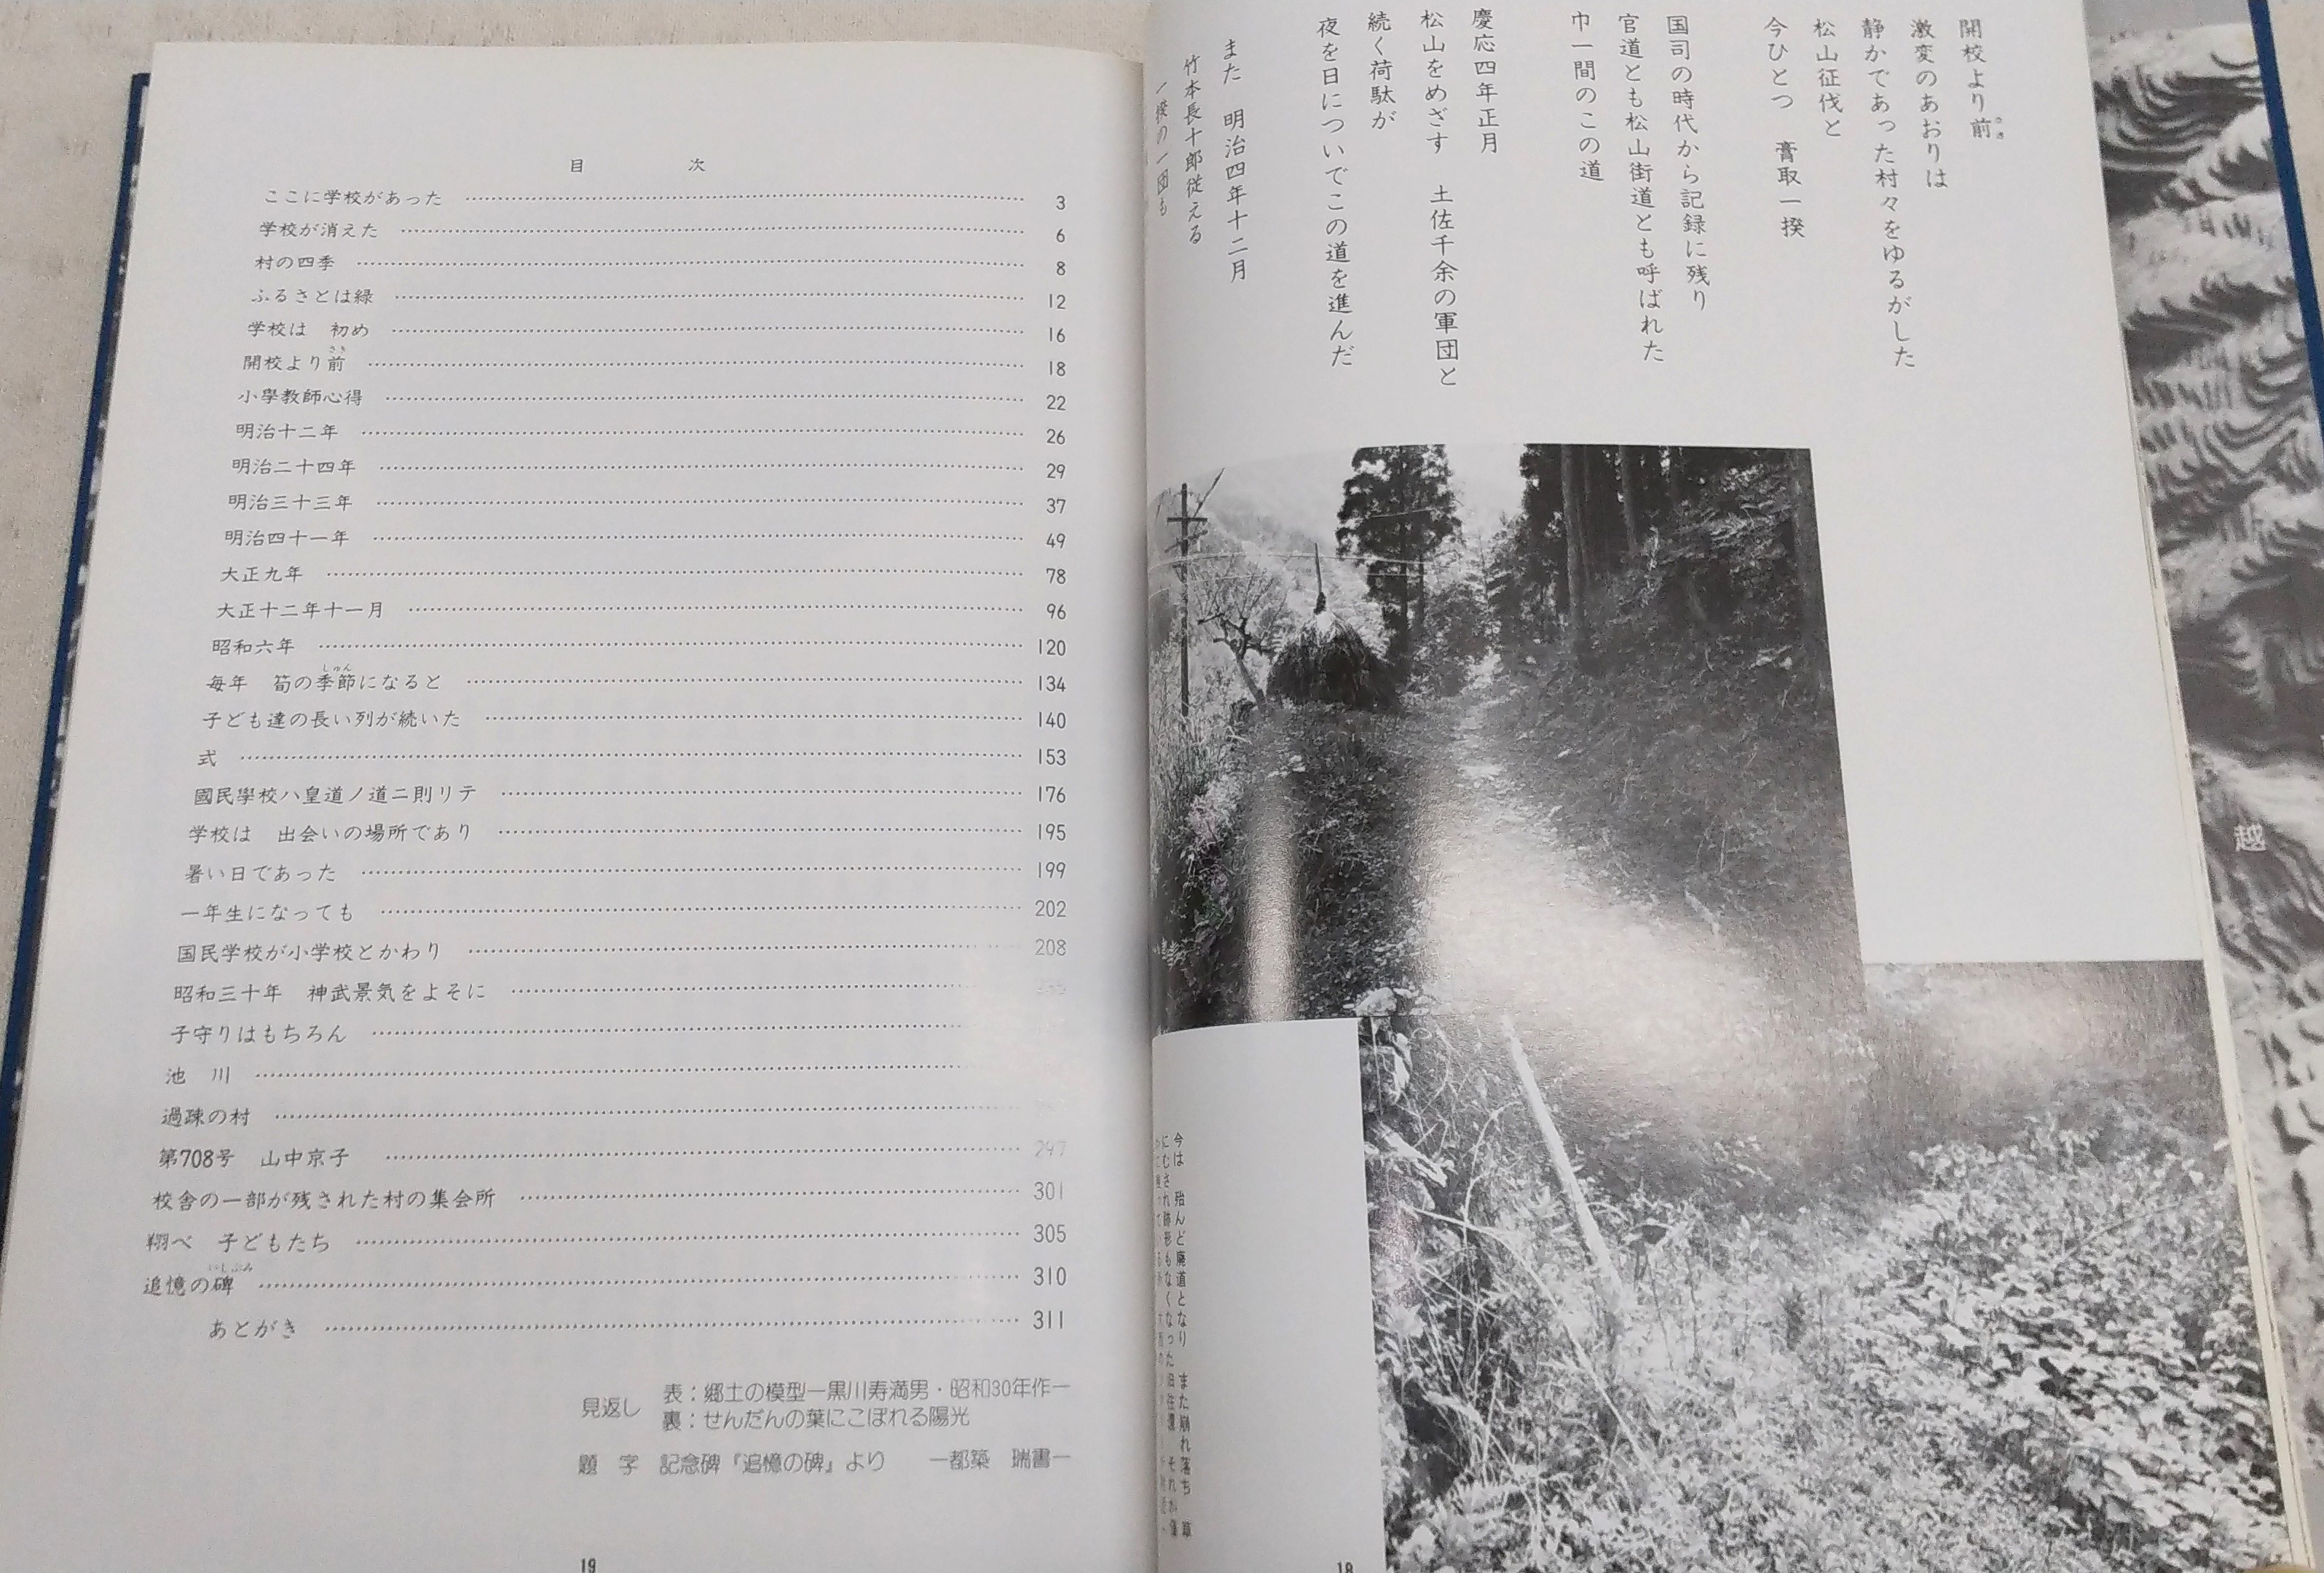 目次
ここに学校があった 3
学校が消えた 6
村の四季 8
ふるさとは緑 12
学校は 初め 16
開校より前 18
さき
小學教師心得 22
明治十二年 26
明治二十四年 29
明治三十三年 37
明治四十一年 49
大正九年 78
大正十二年十一月 96
昭和六年 120
毎年 筍の季節になると 134
しゅん
子ども達の長い列が続いた 140
式 153
國民學校ハ皇道ノ道ニ則リテ 176
学校は 出会いの場所であり 195
暑い日であった 199
一年生になっても 202
国民学校が小学校とかわり 208
昭和三十年 神武景気をよそに
子守りはもちろん
池川
過疎の村
第708号 山中京子 297
校舎の一部が残された村の集会所 301
翔べ 子どもたち 305
追憶の碑 310
いしぶみ
あとがき 311
見返し
表：郷土の模型―黒川寿満男・昭和30年作―
裏：せんだんの葉にこぼれる陽光
題字 記念碑『追憶の碑』より ―都築 瑞書―
19
開校より前
さき
激変のあおりは
静かであった村々をゆるがした
松山征伐と
今ひとつ 膏取一揆
国司の時代から記録に残り
官道とも松山街道とも呼ばれた
巾一間のこの道
慶応四年正月
松山をめざす 土佐千余の軍団と
続く荷駄が
夜を日についでこの道を進んだ
また 明治四年十二月
竹本長十郎従える
一揆の一団も
今は 殆んど廃道となり また崩れ落ち 草
にむされ跡形もなくなった旧往還 それが
18
越